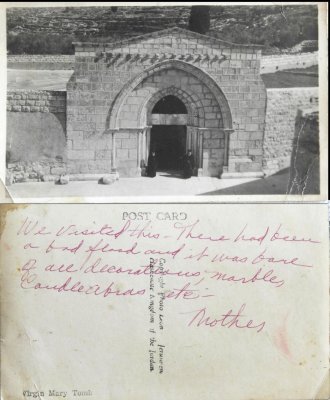 POST CARD
We visited this - There had been
a bad flood and it was bare
of all decorations, marbles
Candleabras etc -
Mother
Copyright Photo Leon Jerusalem
Hashemite Kingdom of the Jordan
Virgin Mary Tomb